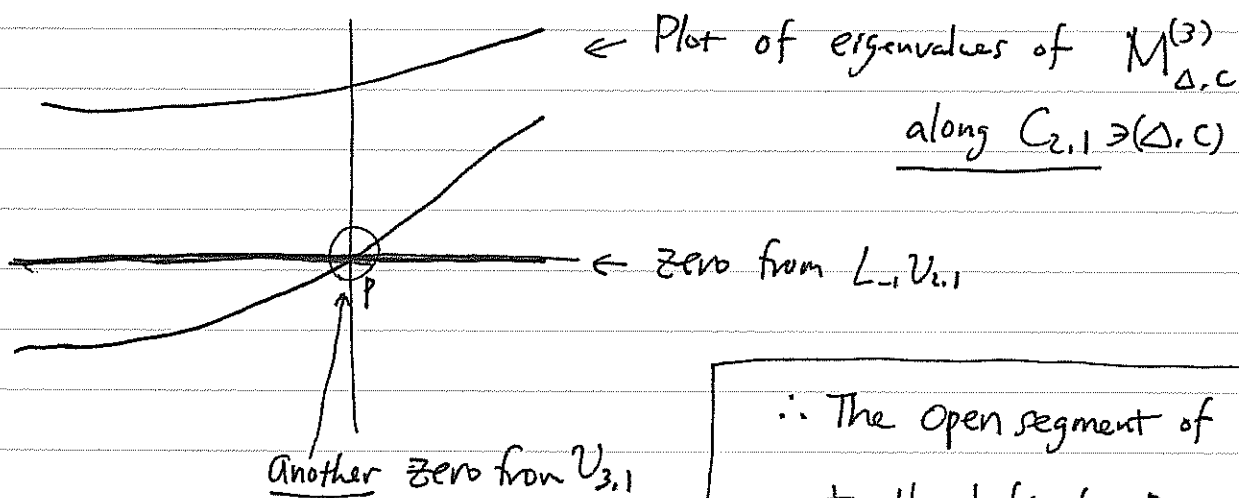 ← Plot of eigenvalues of M^{(3)}_{Δ,c}
along C_{2,1} ∋ (Δ, C)
← zero from L_{-1} V_{2,1}
P
another zero from V_{3,1}
∴ The open segment of